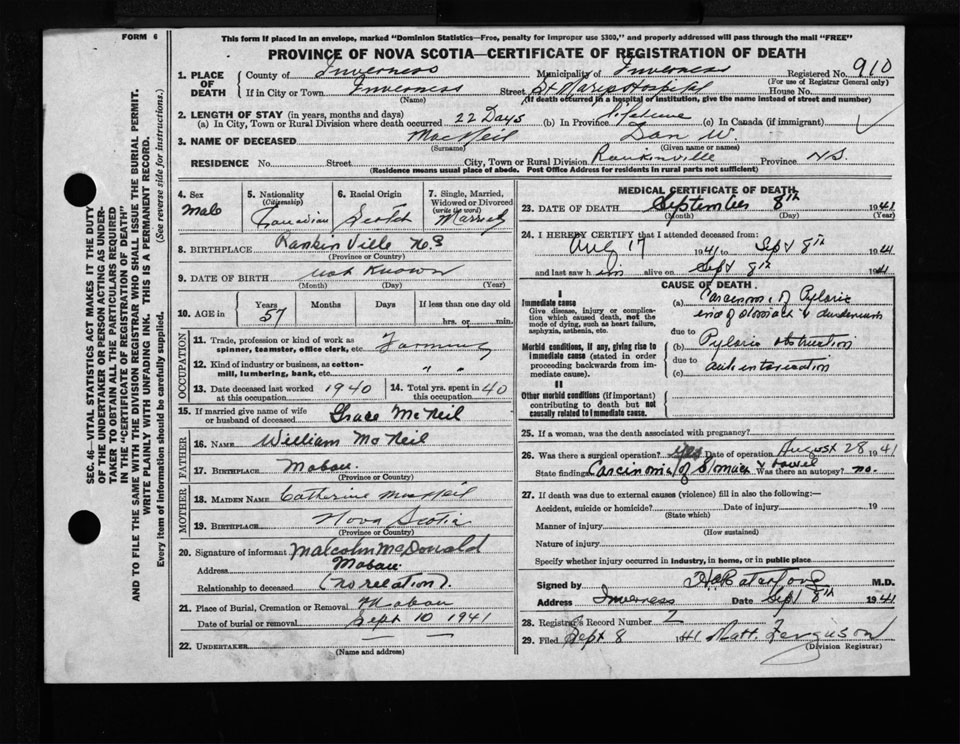 FORM 6
This form if placed in an envelope, marked "Dominion Statistics—Free, penalty for improper use $300," and properly addressed will pass through the mail "FREE"
PROVINCE OF NOVA SCOTIA—CERTIFICATE OF REGISTRATION OF DEATH
SEC. 46—VITAL STATISTICS ACT MAKES IT THE DUTY
OF THE UNDERTAKER OR PERSON ACTING AS UNDER-
TAKER TO OBTAIN ALL THE PARTICULARS REQUIRED
IN THE "CERTIFICATE OF REGISTRATION OF DEATH"
AND TO FILE THE SAME WITH THE DIVISION REGISTRAR WHO SHALL ISSUE THE BURIAL PERMIT.
WRITE PLAINLY WITH UNFADING INK. THIS IS A PERMANENT RECORD.
Every item of information should be carefully supplied. (See reverse side for instructions.)
1. PLACE OF DEATH County of Inverness Municipality of Inverness Registered No. 910
(For use of Registrar General only)
If in City or Town Inverness Street St Marys Hospital House No.
(Name) (If death occurred in a hospital or institution, give the name instead of street and number)
2. LENGTH OF STAY (in years, months and days)
(a) In City, Town or Rural Division where death occurred 22 Days (b) In Province lifetime (c) In Canada (if immigrant)
3. NAME OF DECEASED MacNeil Dan W.
(Surname) (Given name or names)
RESIDENCE No. Street City, Town or Rural Division Rankinville Province N.S.
(Residence means usual place of abode. Post Office Address for residents in rural parts not sufficient)
4. Sex Male
5. Nationality (Citizenship) Canadian
6. Racial Origin Scotch
7. Single, Married, Widowed or Divorced (write the word) Married
8. BIRTHPLACE Rankin Ville N.S
(Province or Country)
9. DATE OF BIRTH Not Known
(Month) (Day) (Year)
10. AGE in Years 57 Months Days If less than one day old
hrs. or min.
OCCUPATION
11. Trade, profession or kind of work as spinner, teamster, office clerk, etc. Farming
12. Kind of industry or business, as cotton-mill, lumbering, bank, etc. " "
13. Date deceased last worked at this occupation 1940
14. Total yrs. spent in this occupation 40
15. If married give name of wife or husband of deceased Grace McNeil
FATHER
16. Name William McNeil
17. Birthplace Mabou
(Province or Country)
MOTHER
18. Maiden Name Catherine MacNeil
19. Birthplace Nova Scotia
(Province or Country)
20. Signature of informant Malcolm McDonald
Address Mabou
Relationship to deceased (no relation).
21. Place of Burial, Cremation or Removal Mabou
Date of burial or removal Sept 10 1941
22. UNDERTAKER — —
(Name and address)
MEDICAL CERTIFICATE OF DEATH
23. DATE OF DEATH September 8th 1941
(Month) (Day) (Year)
24. I HEREBY CERTIFY that I attended deceased from:
Aug 17 1941 to Sept 8th 1941
and last saw him alive on Sept 8th 1941
CAUSE OF DEATH
I
Immediate cause
Give disease, injury or complication which caused death, not the mode of dying, such as heart failure, asphyxia, asthenia, etc.
(a) Carcinoma of Pyloric
end of stomach & duodenum
due to
Morbid conditions, if any, giving rise to immediate cause (stated in order proceeding backwards from immediate cause).
(b) Pyloric obstruction
due to
(c) auto intoxication
II
Other morbid conditions (if important) contributing to death but not causally related to immediate cause.
25. If a woman, was the death associated with pregnancy?
26. Was there a surgical operation? yes Date of operation August 28 1941
State findings Carcinoma of Stomach & bowel Was there an autopsy? no.
27. If death was due to external causes (violence) fill in also the following:—
Accident, suicide or homicide? Date of injury 19
(State which)
Manner of injury
(How sustained)
Nature of injury
Specify whether injury occurred in industry, in home, or in public place
Signed by M.D.
Address Inverness Date Sept 8th 1941
28. Registrar's Record Number 2
29. Filed Sept 8 1941 Matt. Ferguson
(Division Registrar)